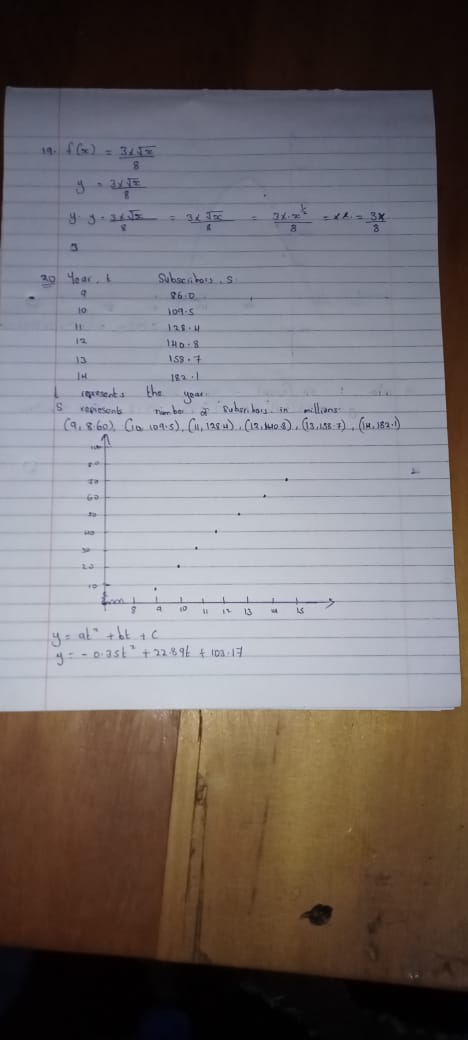 19. f(x) = 3x√x / 8
y = 3x√x / 8
y. y = 3x√x / 8 = 3x √x / 8 = 3x.x^½ / 8 = = 3x / 8
20 Year, t Subscribers, S
9 86.0
10 109.5
11 128.4
12 140.8
13 158.7
14 182.1
t represents the year
S represents number of subscribers in millions
(9, 8.60), (10, 109.5), (11, 128.4), (12, 140.8), (13, 158.7), (14, 182.1)
80
70
60
50
40
30
20
10
8 9 10 11 12 13 14 15
y = at² + bt + c
y = - 0.35t² + 22.89t + 103.17